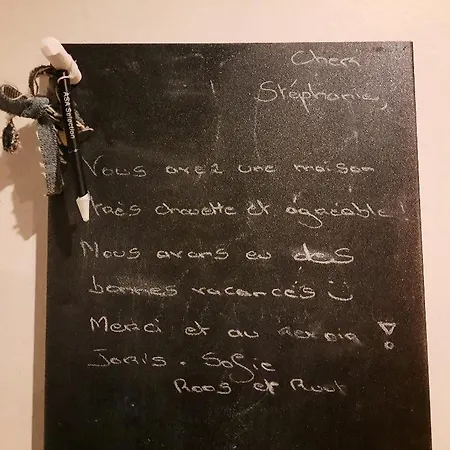 Cher
Stéphanie,
Vous avez une maison
très chouette et agréable!
Nous avons eu des
bonnes vacances
Merci et au revoir !
Joris. Sofie
Roos et Ruut
ASK Selection